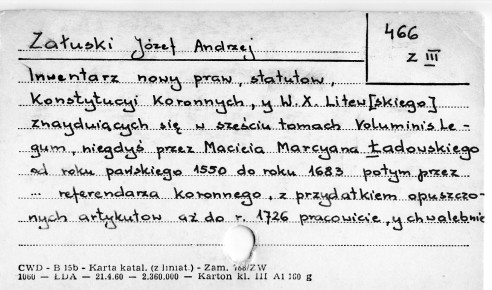 Załuski Józef Andrzej
466
z III
Inwentarz nowy praw, statutow,
Konstytucyi Koronnych, y W. X. Litew[skiego]
znayduiących się w sześciu tomach Voluminis Le-
gum, niegdyś przez Macieia Marcyana Ładowskiego
od roku pańskiego 1550 do roku 1683 potym przez
... referendarza koronnego, z przydatkiem opuszczo-
nych artykutow aż do r. 1726 pracowicie, y chwalebnie
CWD - B 15b - Karta katal. (z liniat.) - Zam. 768/Z W
1060 — LDA — 21.4.60 — 2.360.000 — Karton kl. III A1 160 g